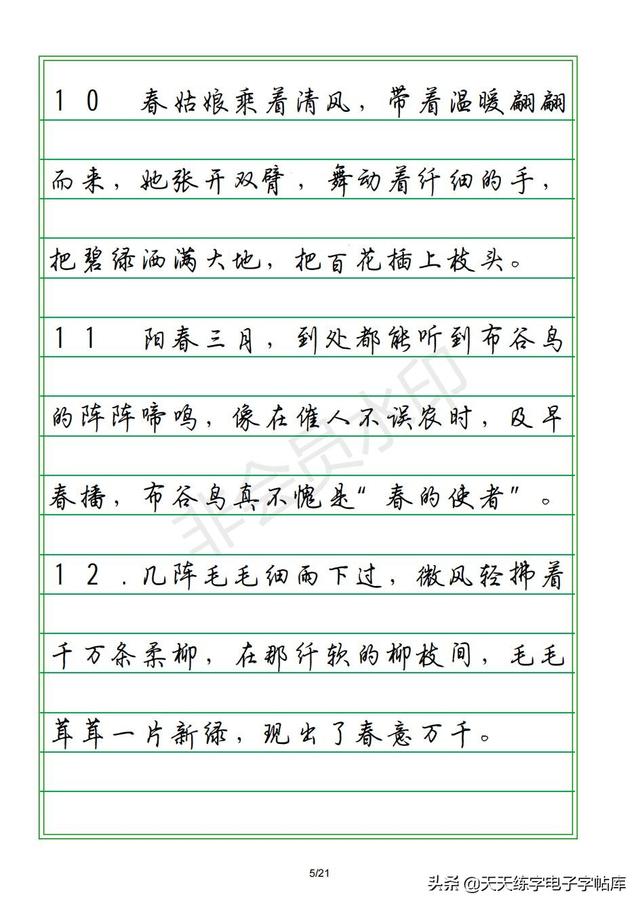 10 春姑娘乘着清风，带着温暖翩翩
而来，她张开双臂，舞动着纤细的手，
把碧绿洒满大地，把百花插上枝头。
11 阳春三月，到处都能听到布谷鸟
的阵阵啼鸣，像在催人不误农时，及早
春播，布谷鸟真不愧是“春的使者”。
12.几阵毛毛细雨下过，微风轻拂着
千万条柔柳，在那纤软的柳枝间，毛毛
茸茸一片新绿，现出了春意万千。
非会员水印
5/21
头条 @天天练字电子字帖库